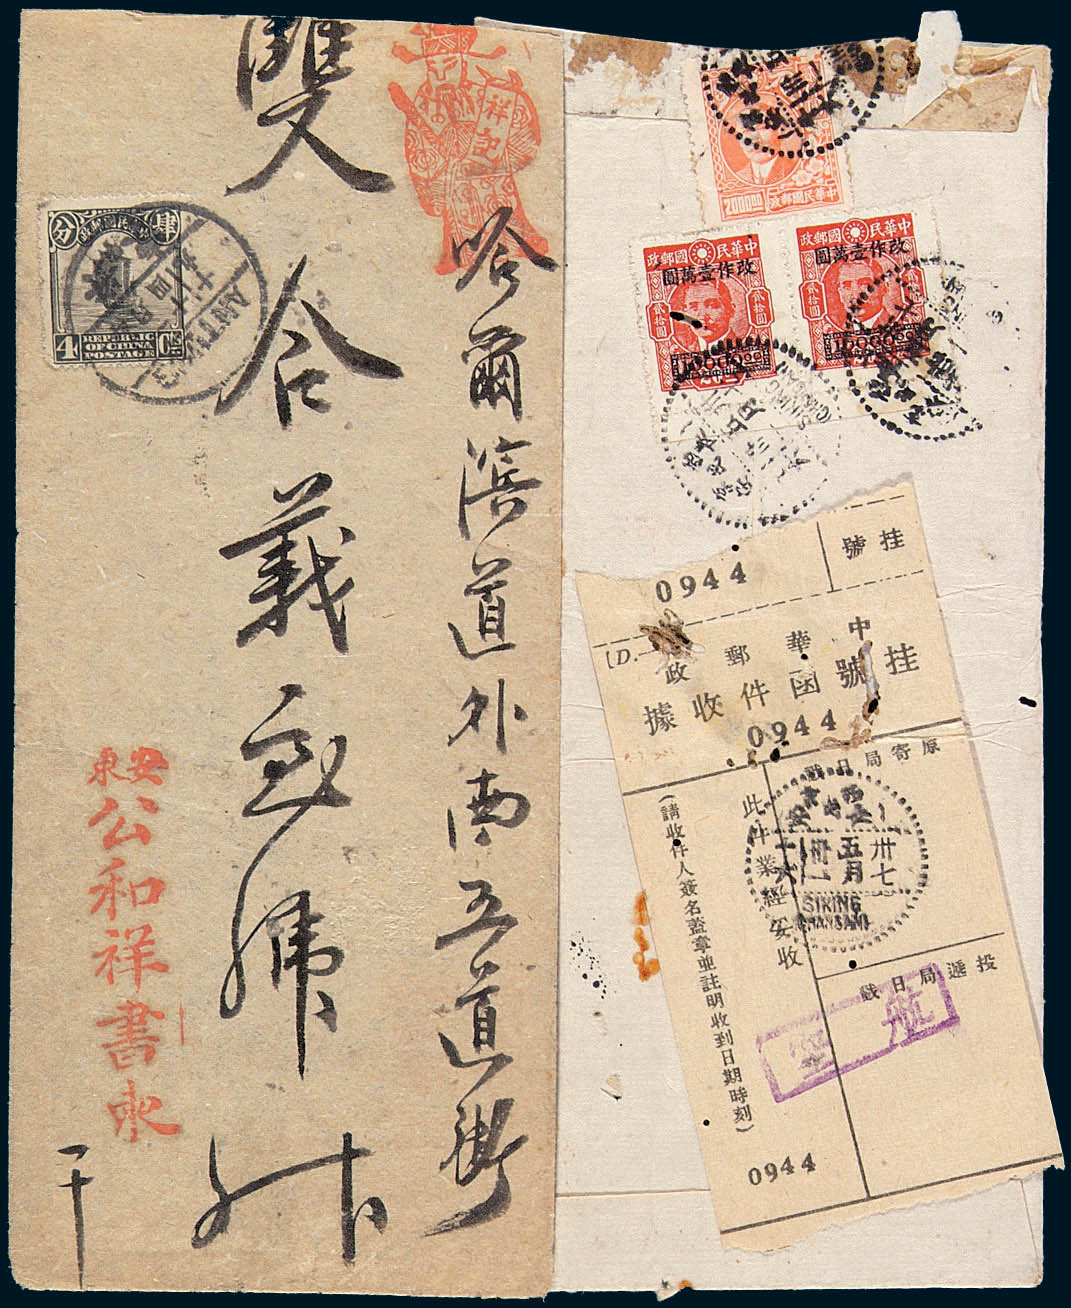 哈爾濱道外南五道街
雙合義寶號
祥記
安東
公和祥書柬
分 肆
4 Cts
REPUBLIC
OF CHINA
POSTAGE
ANTUNG
200000
中華民國郵政
中華民國郵政
改作壹萬圓
貳拾圓
貳拾圓
1000000
中華民國郵政
改作壹萬圓
貳拾圓
貳拾圓
1000000
SIKING
掛號
0944
(D.—
中華郵政
掛號函件收據
0944
原寄局日戳
卅七
五月
SIKING
(SHANSAN)
此件業經妥收
(請收件人簽名蓋章並註明收到日期時刻)
投遞局日戳
航空
0944